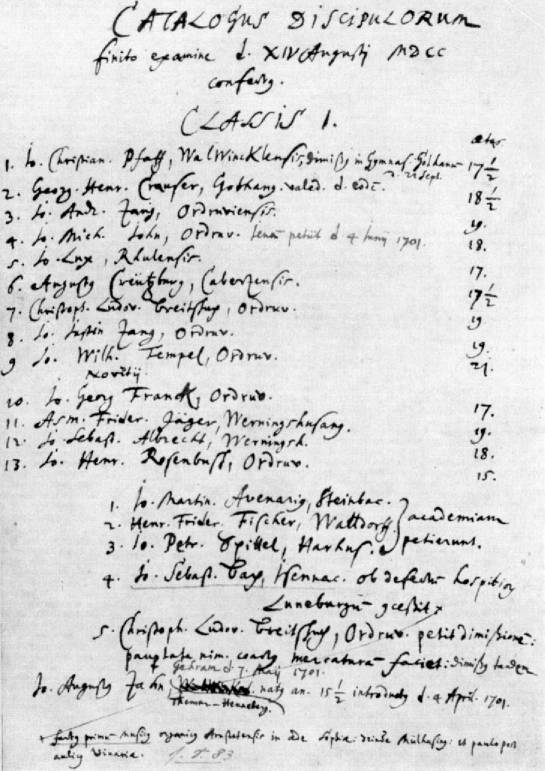 CATALOGUS DISCIPULORUM
finito examine d. XIV Augusti MDCC
confectus.
CLASSIS I.
ætas.
1. Io. Christian. Pfaff, WalWincklensis, dimissus in Gymnas. Gothanum 17 1/2
2. Georg. Henr. Crauser, Gothanus. valed. d. eod. 18 1/2
d. 21 Sept.
3. Io. Andr. Jang, Ordruviensis. 19.
4. Io. Mich. John, Ordruv. petiit d. 4 Iunij 1701. 18.
5. Io. Lux, Rhulensis. 17.
6. Augustus Creützburg, Caberzensis. 17 1/2
7. Christoph. Ludov. Ordruv. 19
8. Io. Justin Jang, Ordruv. 19.
9 Io. Wilh. Tempel, Ordruv. 21.
Novitij
10. Io. Georg Franck, Ordruv. 17.
11. Asm. Frider. Jäger, Werningshusanus. 19.
12. Io Sebast. Albrecht, Werningsh. 18.
13. Io. Henr. Rosenbusch, Ordruv. 15.
1. Io. Martin. Avenarius, Steinbac.
2. Henr. Frider. Fischer, Waltdorff. academiam
3. Io. Petr. Spittel, Harhus. petierunt.
4. Io. Sebast. Bach, Isennac. ob defectum hospitiorum
Luneburgum concessit
5. Christoph. Ludov. Ordruv. petit dimissionem:
paupertate nim. coactus mercaturam faciet: dimissus tandem
d. 7. Maij 1701.
Io. Augustus Jahn, natus an. 15 1/2 introductus d. 4 April. 1701.
Themar-Henneberg.
factus primum musicus organicus Arnstatensis in æde Sophiæ: deinde Mülhusinus: et paulo post
aulicus Vinariæ.